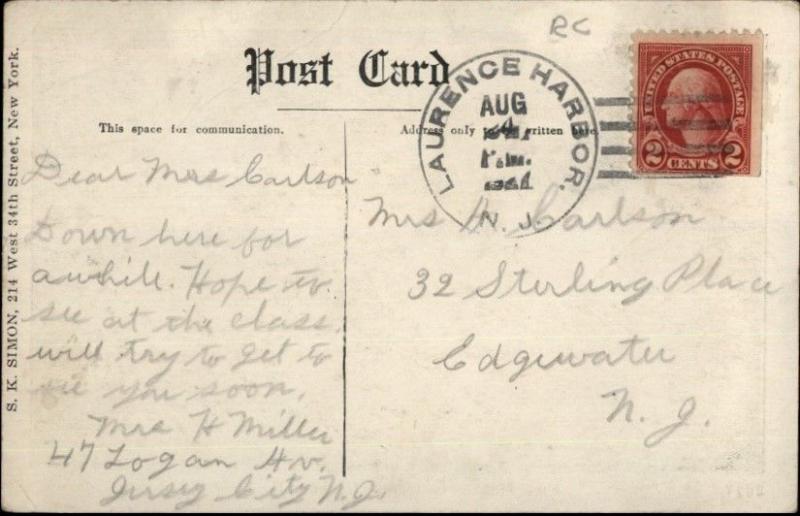 RC
Post Card
This space for communication.
Address only to be written here.
S. K. SIMON, 214 West 34th Street, New York.
LAURENCE HARBOR.
AUG
P.M.
N. J.
UNITED STATES POSTAGE
2 CENTS 2
Dear Mrs Carlson
Down here for
awhile. Hope to
see at the class.
will try to get to
see you soon.
Mrs H Miller
47 Logan Av.
Jersey City N.J.
Mrs H. Carlson
32 Sterling Place
Edgewater
N. J.